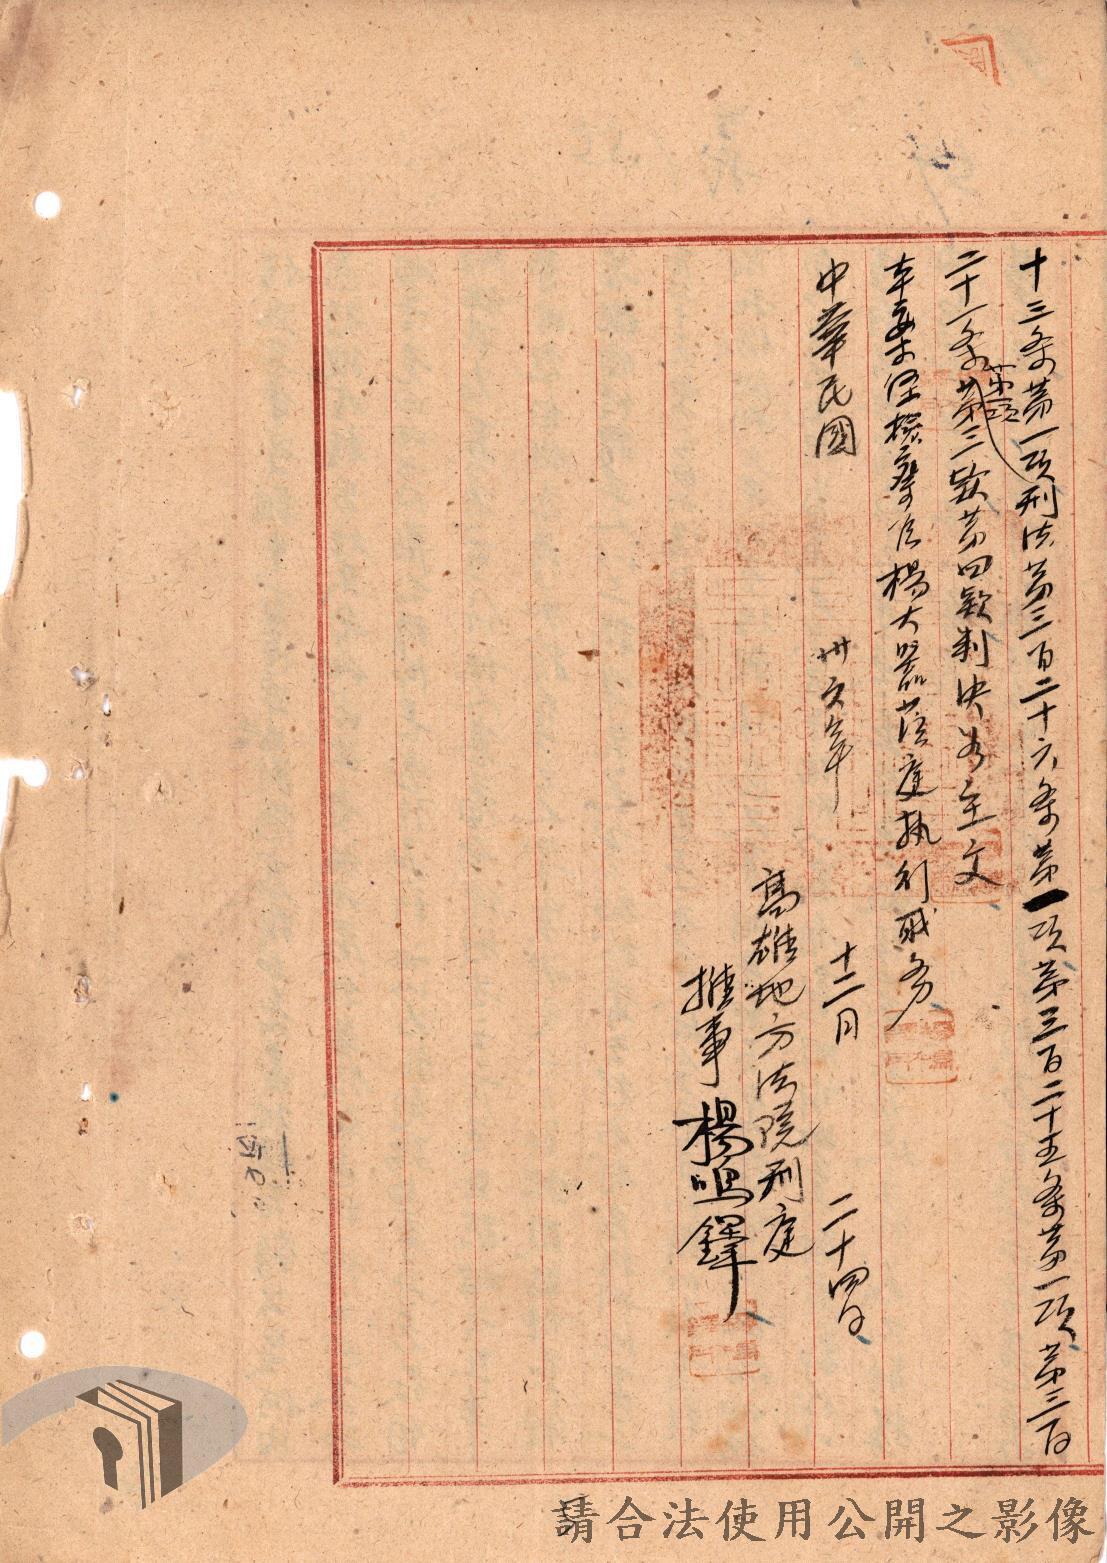 十三条第一項刑法第三百二十六条第一項第三百二十五条第一項第三百
二十一条第一項第三款第四款判決如主文
本案經檢察官楊大器蒞庭執行職务
中華民國卅六年十二月二十四日
高雄地方法院刑庭
推事楊鳴鐸
請合法使用公開之影像